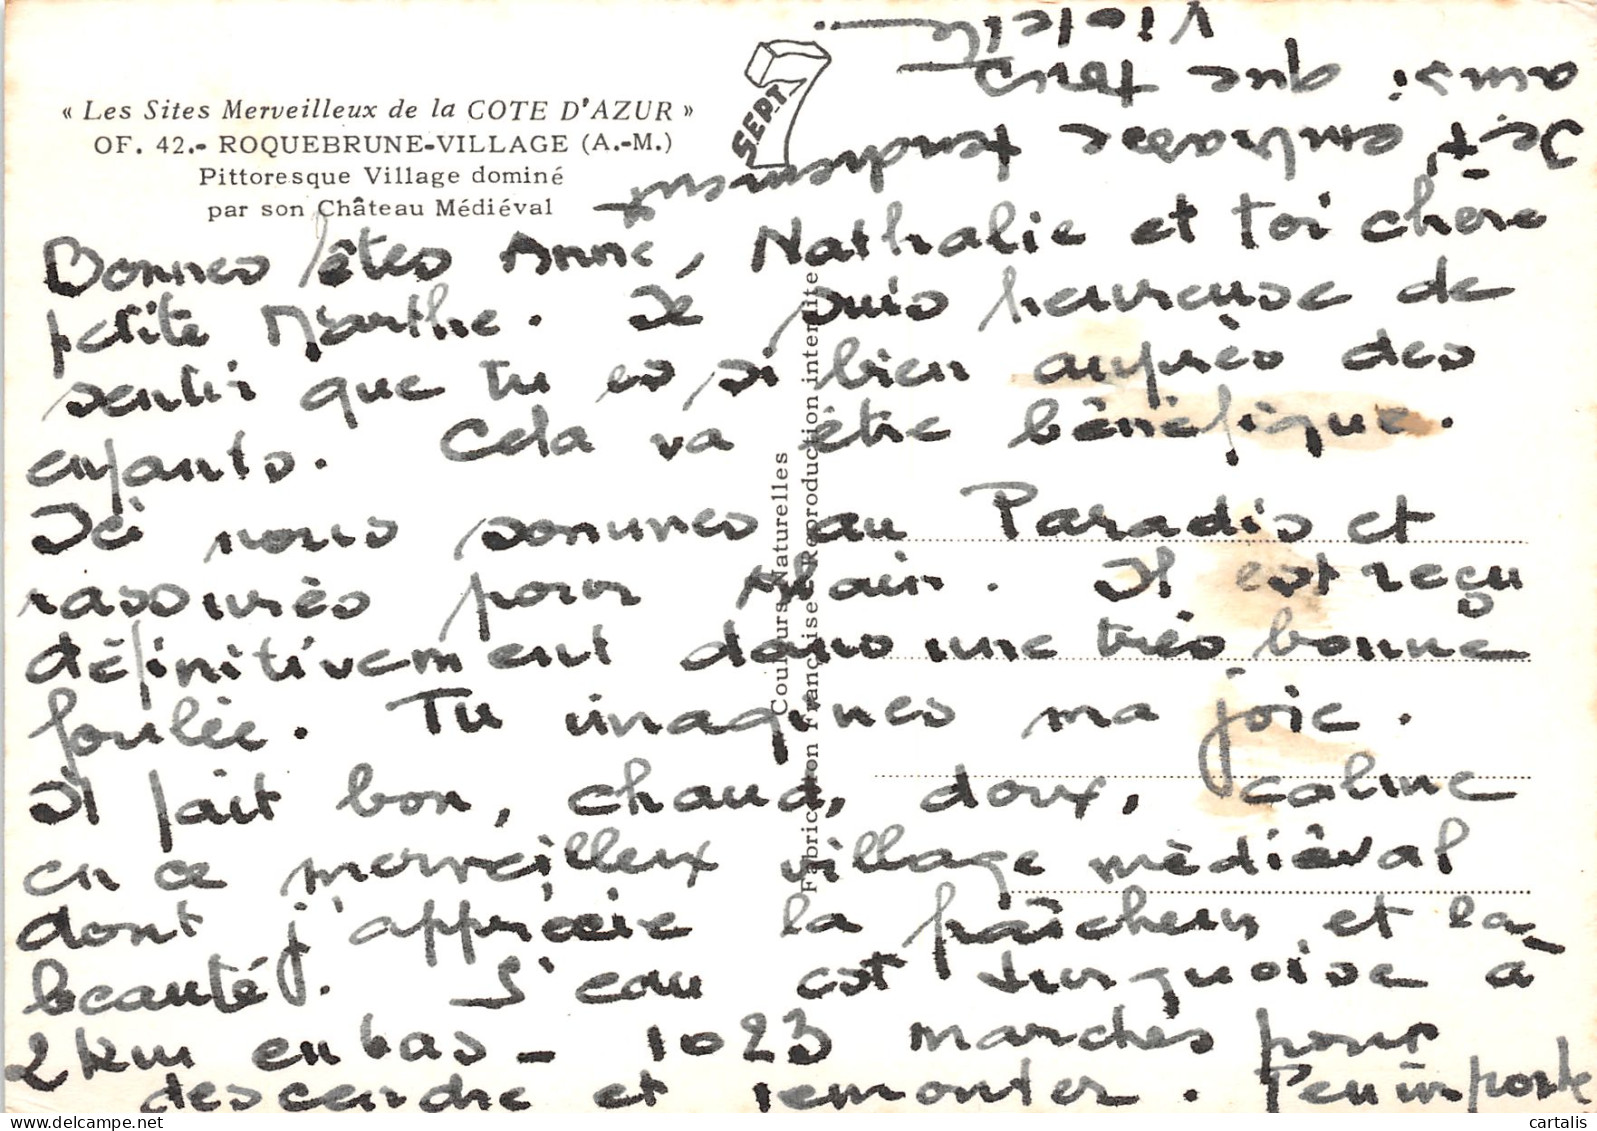 « Les Sites Merveilleux de la COTE D'AZUR »
OF. 42.- ROQUEBRUNE-VILLAGE (A.-M.)
Pittoresque Village dominé
par son Château Médiéval
SEPT
Couleurs Naturelles
Fabrication Française - Reproduction interdite
Bonnes fêtes Anne, Nathalie et toi chère
petite Marthe. Je suis heureuse de
sentir que tu es si bien auprès des
enfants. Cela va être bénéfique.
Ici nous sommes au Paradis et
rassurés pour Alain. Il est reçu
définitivement dans une très bonne
foulée. Tu imagines ma joie.
Il fait bon, chaud, doux, calme
en ce merveilleux village médiéval
dont j'apprécie la fraîcheur et la
beauté. L'eau est turquoise à
2 km en bas - 1023 marches pour
descendre et remonter. Peu importe
Je t'embrasse tendrement
ainsi que tous
cartalis